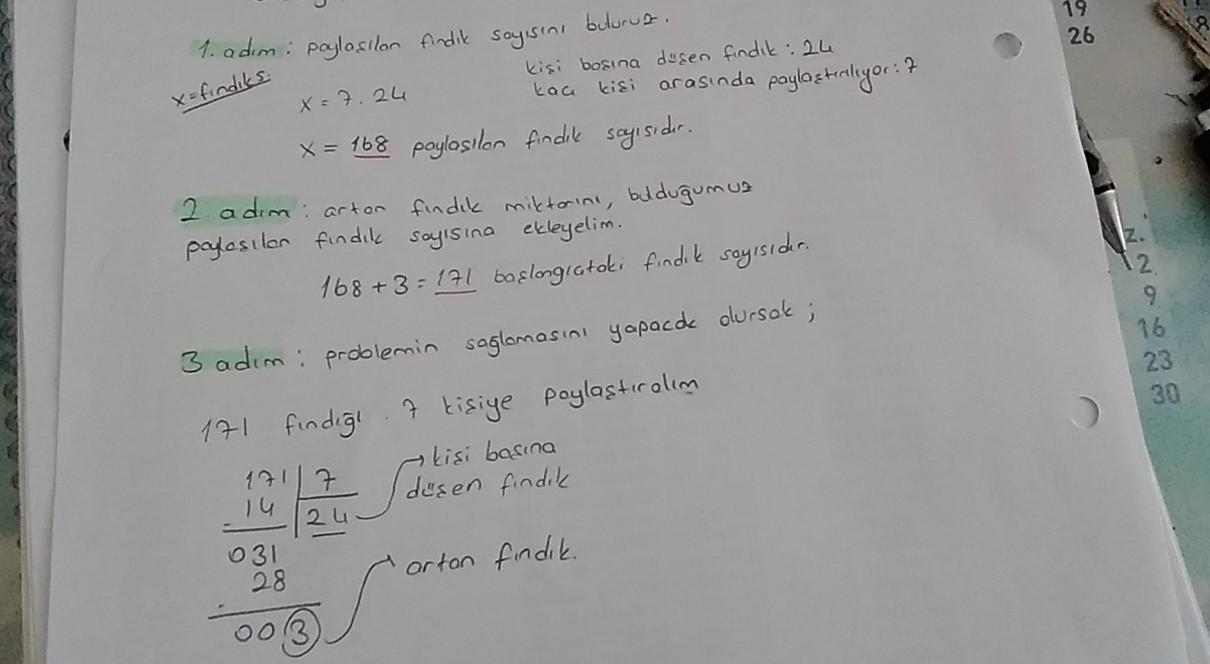 1. adım : paylaşılan fındık sayısını buluruz.
x=fındık s.
kişi başına düşen fındık : 24
x = 7 . 24
kaç kişi arasında paylaştırılıyor : 7
x = 168 paylaşılan fındık sayısıdır.
2 adım : artan fındık miktarını, bulduğumuz
paylaşılan fındık sayısına ekleyelim.
168 + 3 = 171 başlangıçtaki fındık sayısıdır.
3 adım : problemin sağlamasını yapacak olursak ;
171 fındığı 7 kişiye paylaştıralım
171 | 7
- 14 | 24
→ kişi başına
düşen fındık
031
- 28
003
→ artan fındık.
19
26
2.
2
9
16
23
30